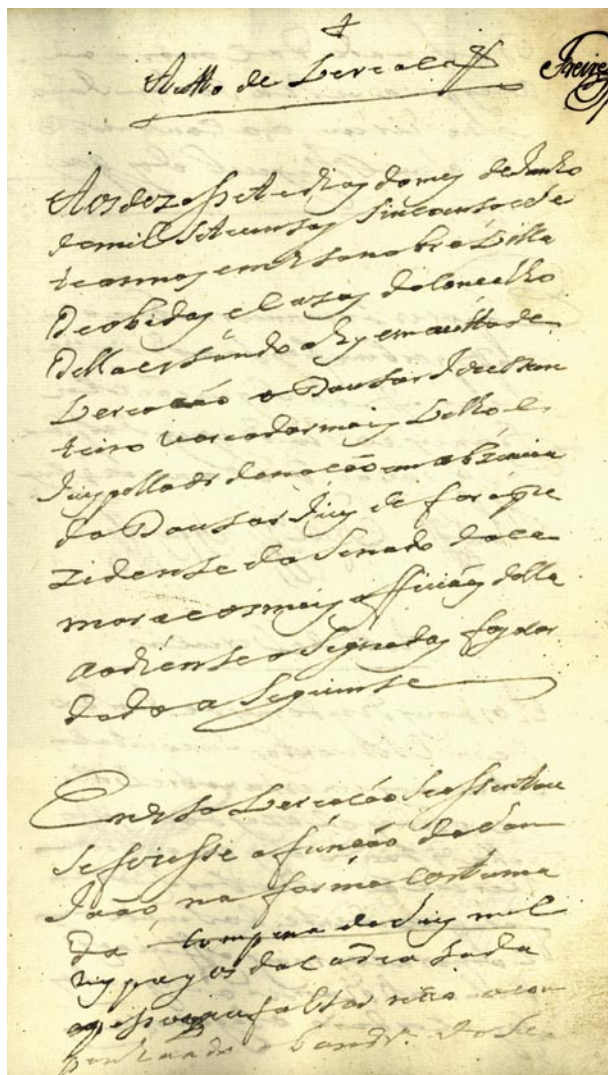 Autto de Vereaçaõ
Freire
Aos dez assete dias do mes de Junho
de mil setecentos sincoenta e se
te annos em esta nobre Villa
de obidos e Cazas do Concelho
della estando ahy em autto de
Vereaçaõ o Doutor
Vereador mais Velho e
Juis pella ordenaçaõ em abzencia
do Doutor Juis de fora e pre
zidente do Senado da ca
mara e os mais officiais della
ao diente asignados foy acor
dado o Seguinte
En esta Vereaçaõ se assentou
se fizesse a funçaõ de Sam
Joaõ na forma custuma
da com pena de dez mil
reis pagos da Cadea toda
a pesoa que faltar